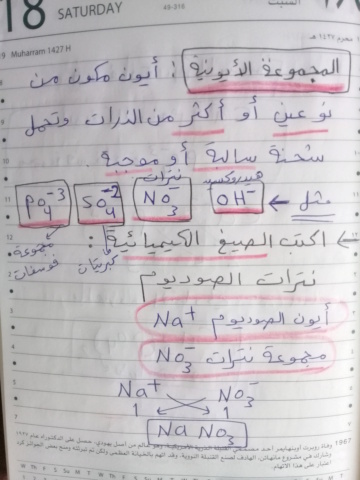 18 SATURDAY
49-316
السبت
19 Muharram 1427 H
محرم ١٤٢٧ هـ
المجموعة الأيونية : أيون مكون من
نوعين أو أكثر من الذرات وتحمل
شحنة سالبة أو موجبة .
هيدروكسيد نترات
مثل ← OH⁻ NO₃⁻ SO₄⁻² PO₄⁻³
كبريتات مجموعة فوسفات
← اكتب الصيغ الكيميائية :
نترات الصوديوم
أيون الصوديوم Na⁺
مجموعة نترات NO₃⁻
Na⁺ NO₃⁻
1 1
Na NO₃
1967